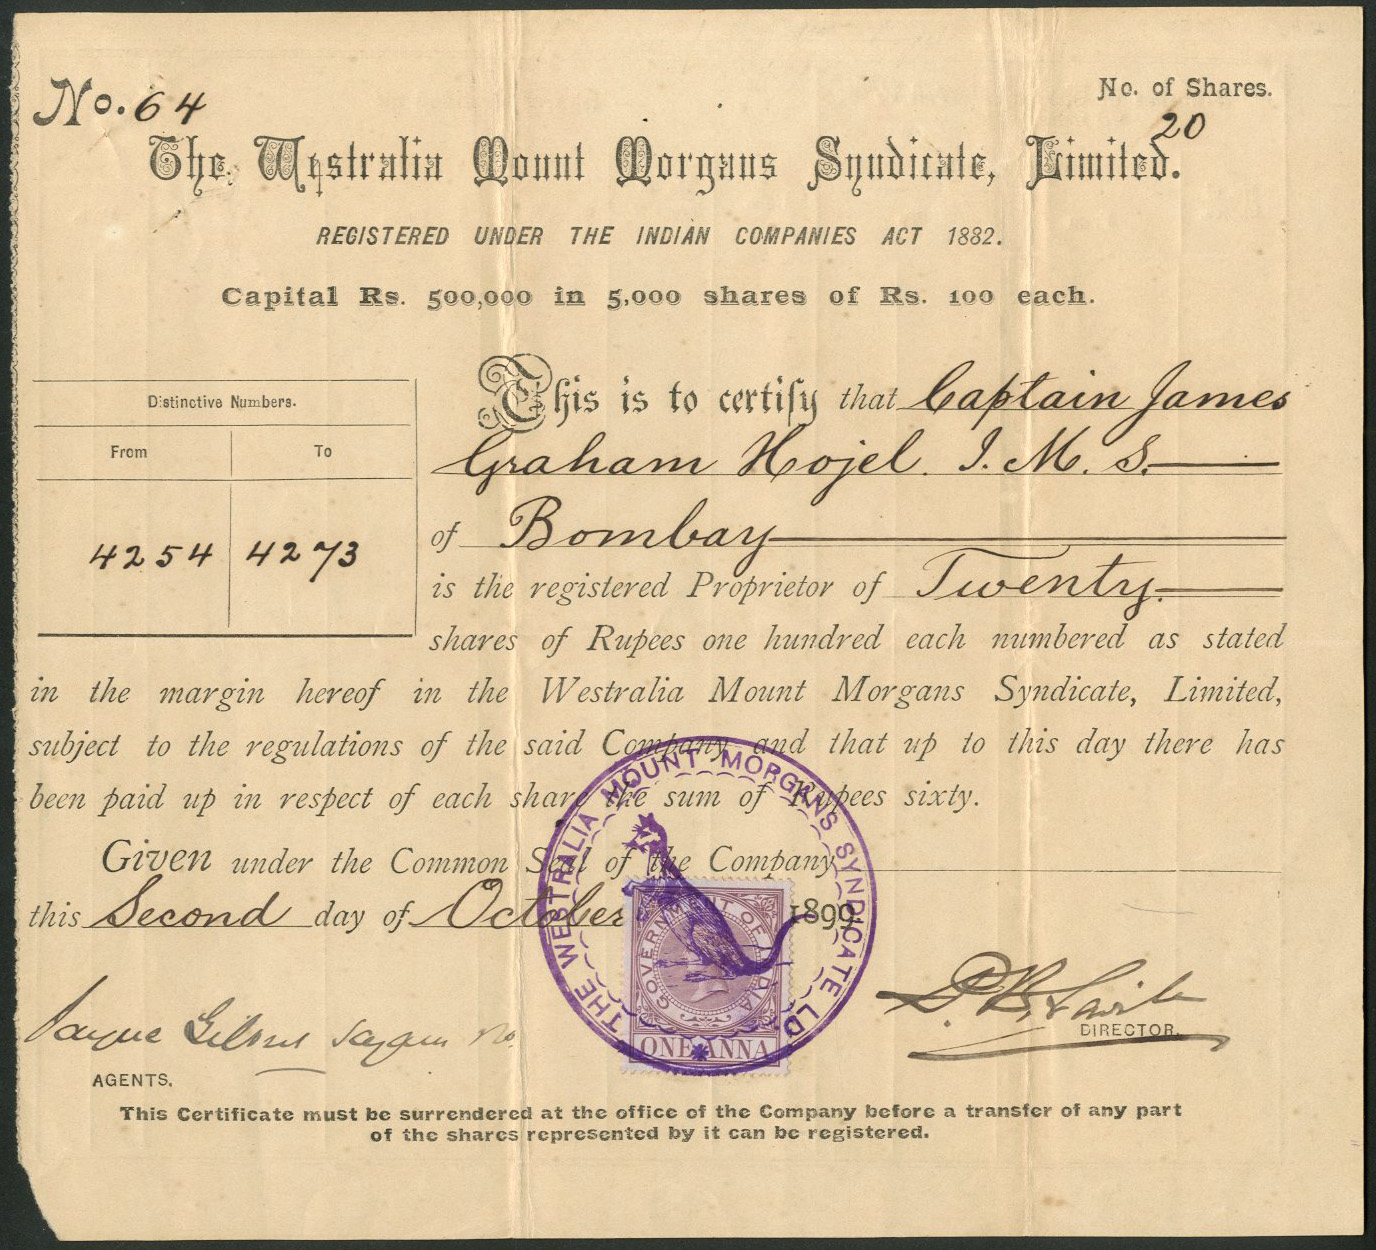 No. 64
No. of Shares.
20
The Westralia Mount Morgans Syndicate, Limited.
REGISTERED UNDER THE INDIAN COMPANIES ACT 1882.
Capital Rs. 500,000 in 5,000 shares of Rs. 100 each.
Distinctive Numbers.
From To
4254 4273
This is to certify that Captain James
Graham Hojel. I. M. S.
of Bombay
is the registered Proprietor of Twenty
shares of Rupees one hundred each numbered as stated
in the margin hereof in the Westralia Mount Morgans Syndicate, Limited,
subject to the regulations of the said Company and that up to this day there has
been paid up in respect of each share the sum of Rupees sixty.
Given under the Common Seal of the Company
this Second day of October 1899.
THE WESTRALIA MOUNT MORGANS SYNDICATE LD.
GOVERNMENT OF INDIA
ONE ANNA
DIRECTOR.
AGENTS.
This Certificate must be surrendered at the office of the Company before a transfer of any part
of the shares represented by it can be registered.